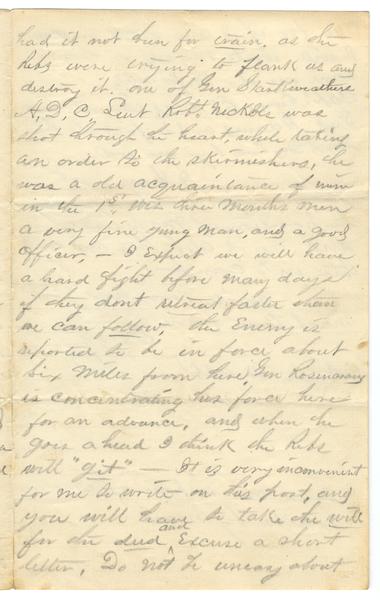 had it not been for train. as the
Rebs were trying to flank us and
destroy it. one of Gen Starkweathers
A, D, C, Leut Robt. Nickols was
shot through the heart, while taking
an order to the skirmeshers, he
was a old acquaintance of mine
in the 1st Wis three months men
a very fine yung man, and a good
officer, – I Expect we will have
a hard fight before many days
if they dont retreat faster than
we can follow, the Enemy is
reported to be in force about
six miles from here, Gen Rosencrans
is concentrating his force here
for an advance, and when he
goes a head I think the Rebs
will "git" – It is very inconvenient
for me to write on this post, and
you will have to take the will
for the deed and Excuse a short
letter, Do not be uneasy about